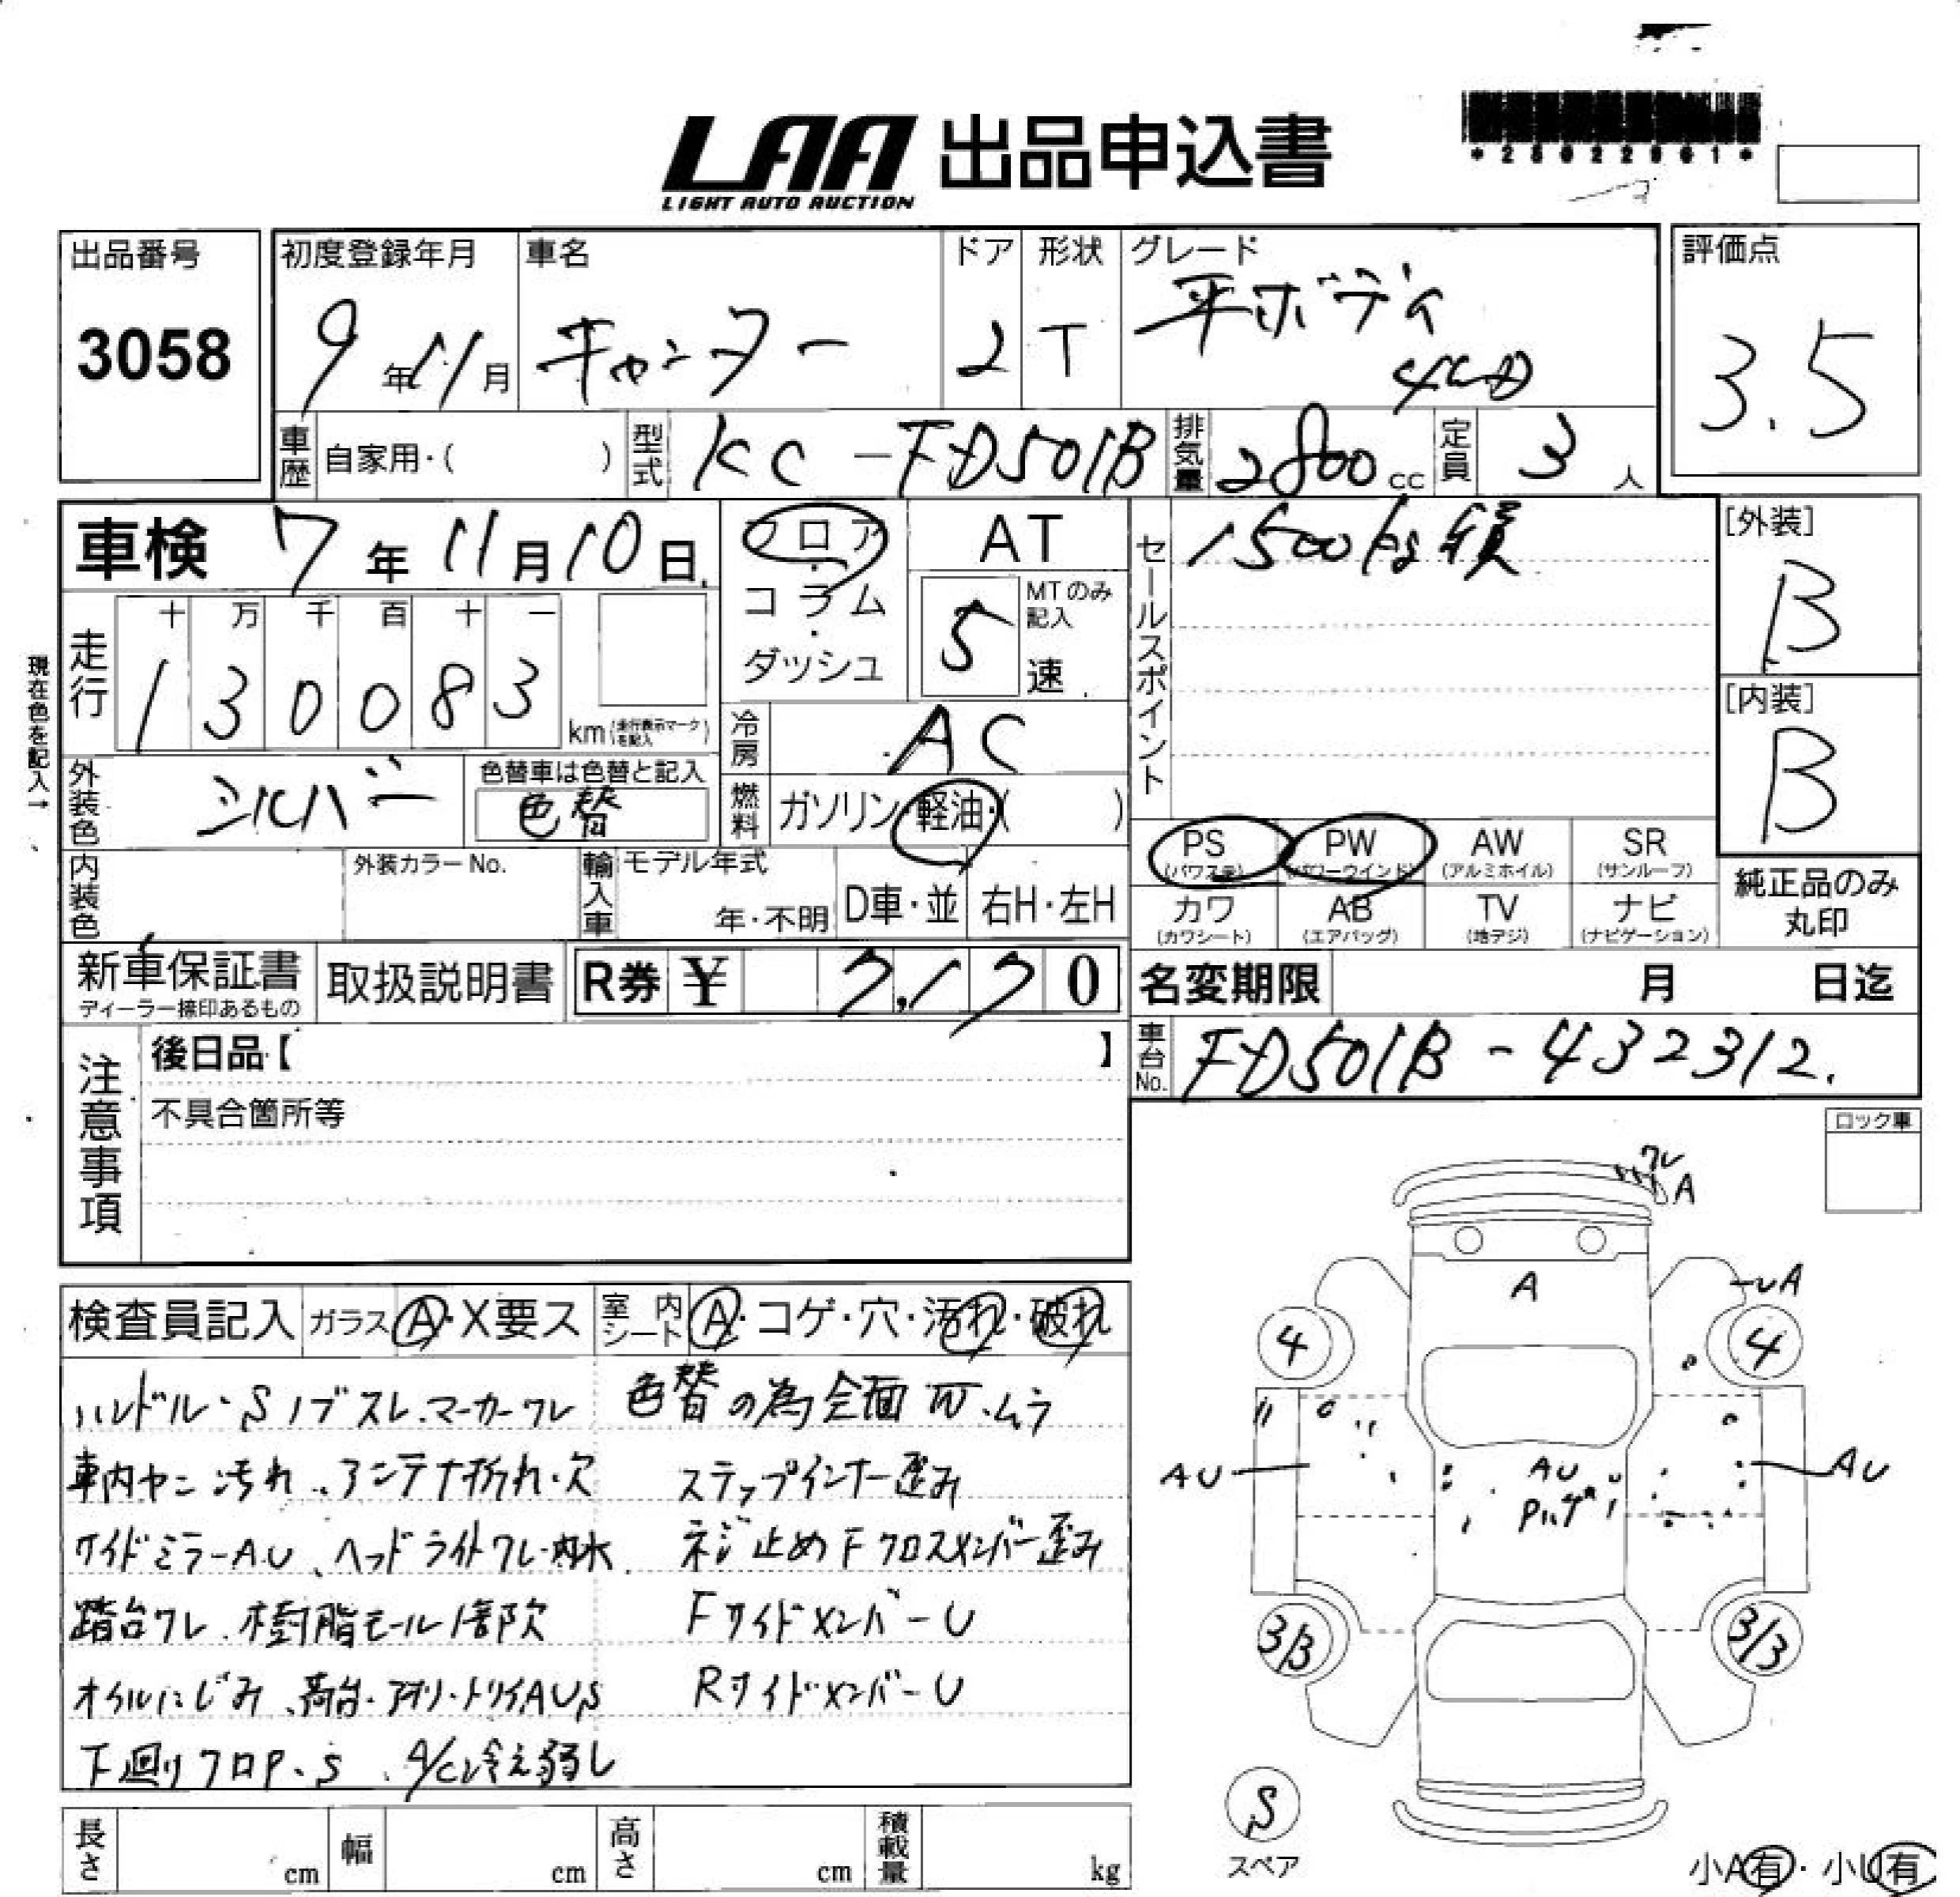 LAA 出品申込書
LIGHT AUTO AUCTION
*28022961*
出品番号
3058
初度登録年月
9年11月
車名
キャンター
ドア
2
形状
T
グレード
平ボディ
4WD
評価点
3.5
車歴 自家用・( )
型式 KC-FD501B
排気量 2800cc
定員 3人
車検 7年11月10日
フロア・コラム・ダッシュ
AT
5 MTのみ記入 速
セールスポイント
1500kg積
[外装]
B
[内装]
B
現在色を記入→
走行
十 万 千 百 十 一
1 3 0 0 8 3
km(走行表示マークを記入)
冷房 AC
外装色 シルバー
色替車は色替と記入
色替
燃料 ガソリン・軽油・( )
PS (パワステ)
PW (パワーウインド)
AW (アルミホイル)
SR (サンルーフ)
カワ (カワシート)
AB (エアバッグ)
TV (地デジ)
ナビ (ナビゲーション)
純正品のみ丸印
内装色
外装カラーNo.
輸入車 モデル年式
年・不明
D車・並
右H・左H
新車保証書
ディーラー捺印あるもの
取扱説明書
R券 ¥ 7,170
名変期限 月 日迄
車台No. FD501B-432312.
注意事項
後日品【 】
不具合箇所等
ロック車
検査員記入 ガラス A・X要ス
室内シート A・コゲ・穴・汚れ・破れ
ハンドル・Sノブスレ.マーカーワレ
車内ヤニ汚れ、アンテナ折れ・欠
サイドミラーAU、ヘッドライトワレ・内水
踏台ワレ、樹脂モール1部欠
オイルにじみ、荷台・アオリ・トリイAUS
下廻りクロP、S、A/C冷え弱し
色替の為全面W、ムラ
ステップインナー歪み
ネジ止めFクロスメンバー歪み
FサイドメンバーU
RサイドメンバーU
ワレ
A
A
A
4
4
AU
AU
AU
3/3
3/3
S
スペア
小A有・小U有
長さ cm
幅 cm
高さ cm
積載量 kg